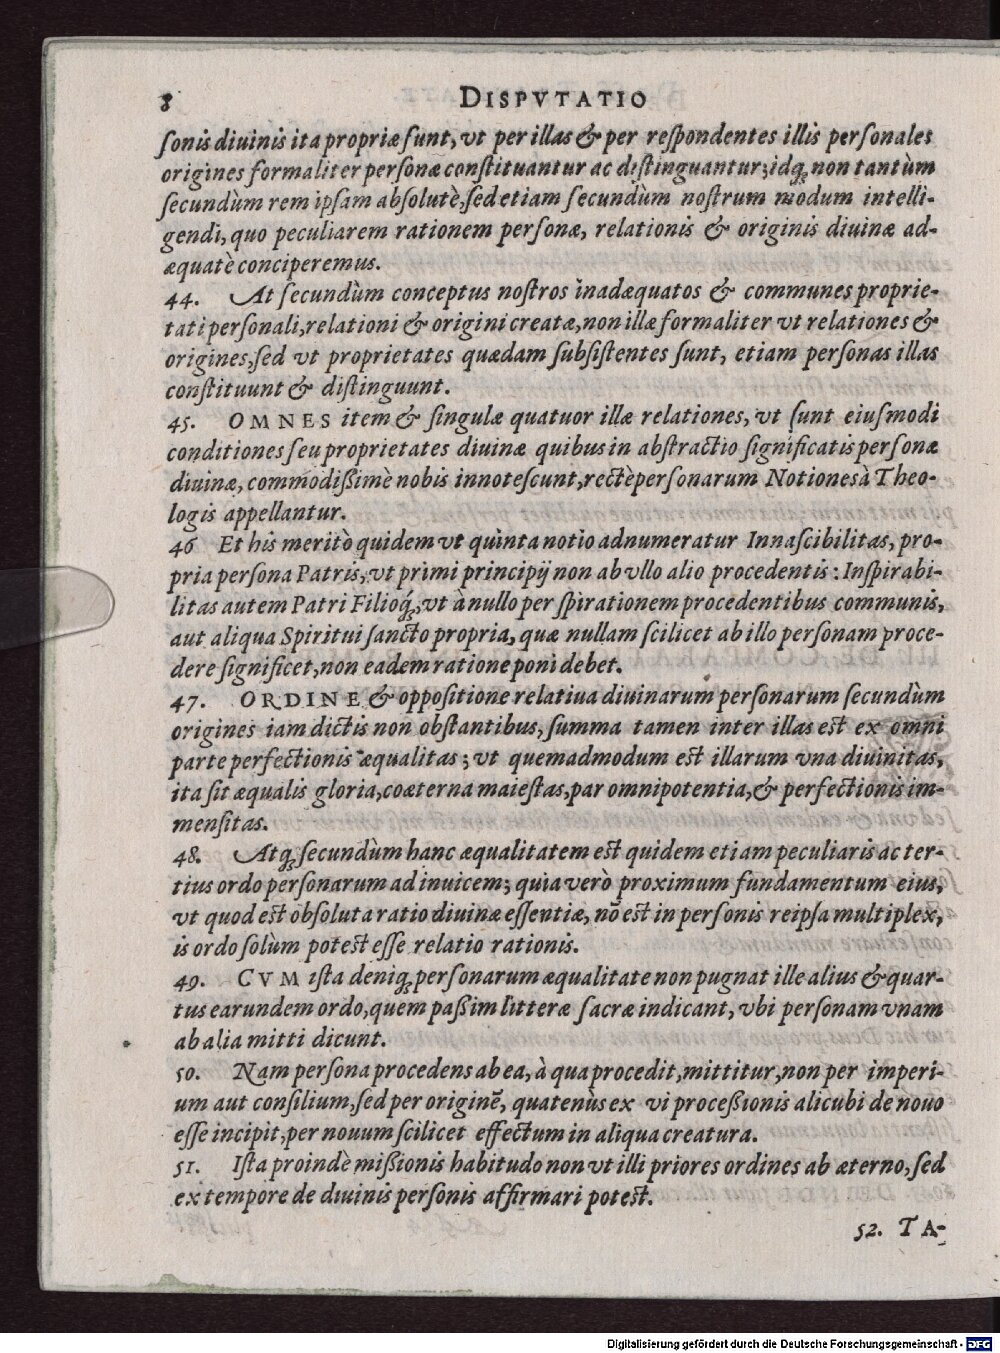 8 DISPVTATIO
sonis diuinis ita propriæ sunt, vt per illas & per respondentes illis personales
origines formaliter personæ constituantur ac distinguantur; idq; non tantùm
secundùm rem ipsam absolutè, sed etiam secundùm nostrum modum intelli-
gendi, quo peculiarem rationem personæ, relationis & originis diuinæ ad-
æquatè conciperemus.
44. At secundùm conceptus nostros inadæquatos & communes proprie-
tati personali, relationi & origini creatæ, non illæ formaliter vt relationes &
origines, sed vt proprietates quædam subsistentes sunt, etiam personas illas
constituunt & distinguunt.
45. OMNES item & singulæ quatuor illæ relationes, vt sunt eiusmodi
conditiones seu proprietates diuinæ quibus in abstractio significatis personæ
diuinæ, commodißimè nobis innotescunt, rectè personarum Notiones à Theo-
logis appellantur.
46 Et his meritò quidem vt quinta notio adnumeratur Innascibilitas, pro-
pria persona Patris, vt primi principij non ab vllo alio procedentis: Inspirabi-
litas autem Patri Filioq́;, vt à nullo per spirationem procedentibus communis,
aut aliqua Spiritui sancto propria, quæ nullam scilicet ab illo personam proce-
dere significet, non eadem ratione poni debet.
47. ORDINE & oppositione relatiua diuinarum personarum secundùm
origines iam dictis non obstantibus, summa tamen inter illas est ex omni
parte perfectionis æqualitas; vt quemadmodum est illarum vna diuinitas,
ita sit æqualis gloria, coæterna maiestas, par omnipotentia, & perfectionis im-
mensitas.
48. Atq; secundùm hanc æqualitatem est quidem etiam peculiaris ac ter-
tius ordo personarum ad inuicem; quia verò proximum fundamentum eius,
vt quod est obsoluta ratio diuinæ essentiæ, nō est in personis reipsa multiplex,
is ordo solùm potest esse relatio rationis.
49. CVM ista deniq; personarum æqualitate non pugnat ille alius & quar-
tus earundem ordo, quem paßim litteræ sacræ indicant, vbi personam vnam
ab alia mitti dicunt.
50. Nam persona procedens ab ea, à qua procedit, mittitur, non per imperi-
um aut consilium, sed per originē, quatenùs ex vi proceßionis alicubi de nouo
esse incipit, per nouum scilicet effectum in aliqua creatura.
51. Ista proindè mißionis habitudo non vt illi priores ordines ab æterno, sed
ex tempore de diuinis personis affirmari potest.
52. TA-
Digitalisierung gefördert durch die Deutsche Forschungsgemeinschaft - DFG